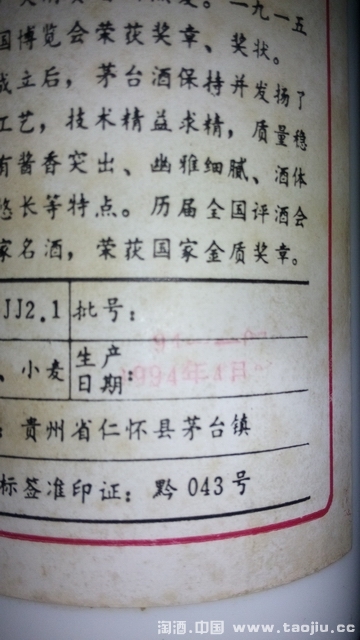 一九一五
国博览会荣获奖章、奖状。
成立后，茅台酒保持并发扬了
工艺，技术精益求精，质量稳
有酱香突出、幽雅细腻、酒体
悠长等特点。历届全国评酒会
家名酒，荣获国家金质奖章。
JJ2.1 批号：
、小麦 生产日期：1994年1月
：贵州省仁怀县茅台镇
标签准印证：黔 043 号
淘酒.中国 www.taojiu.cc